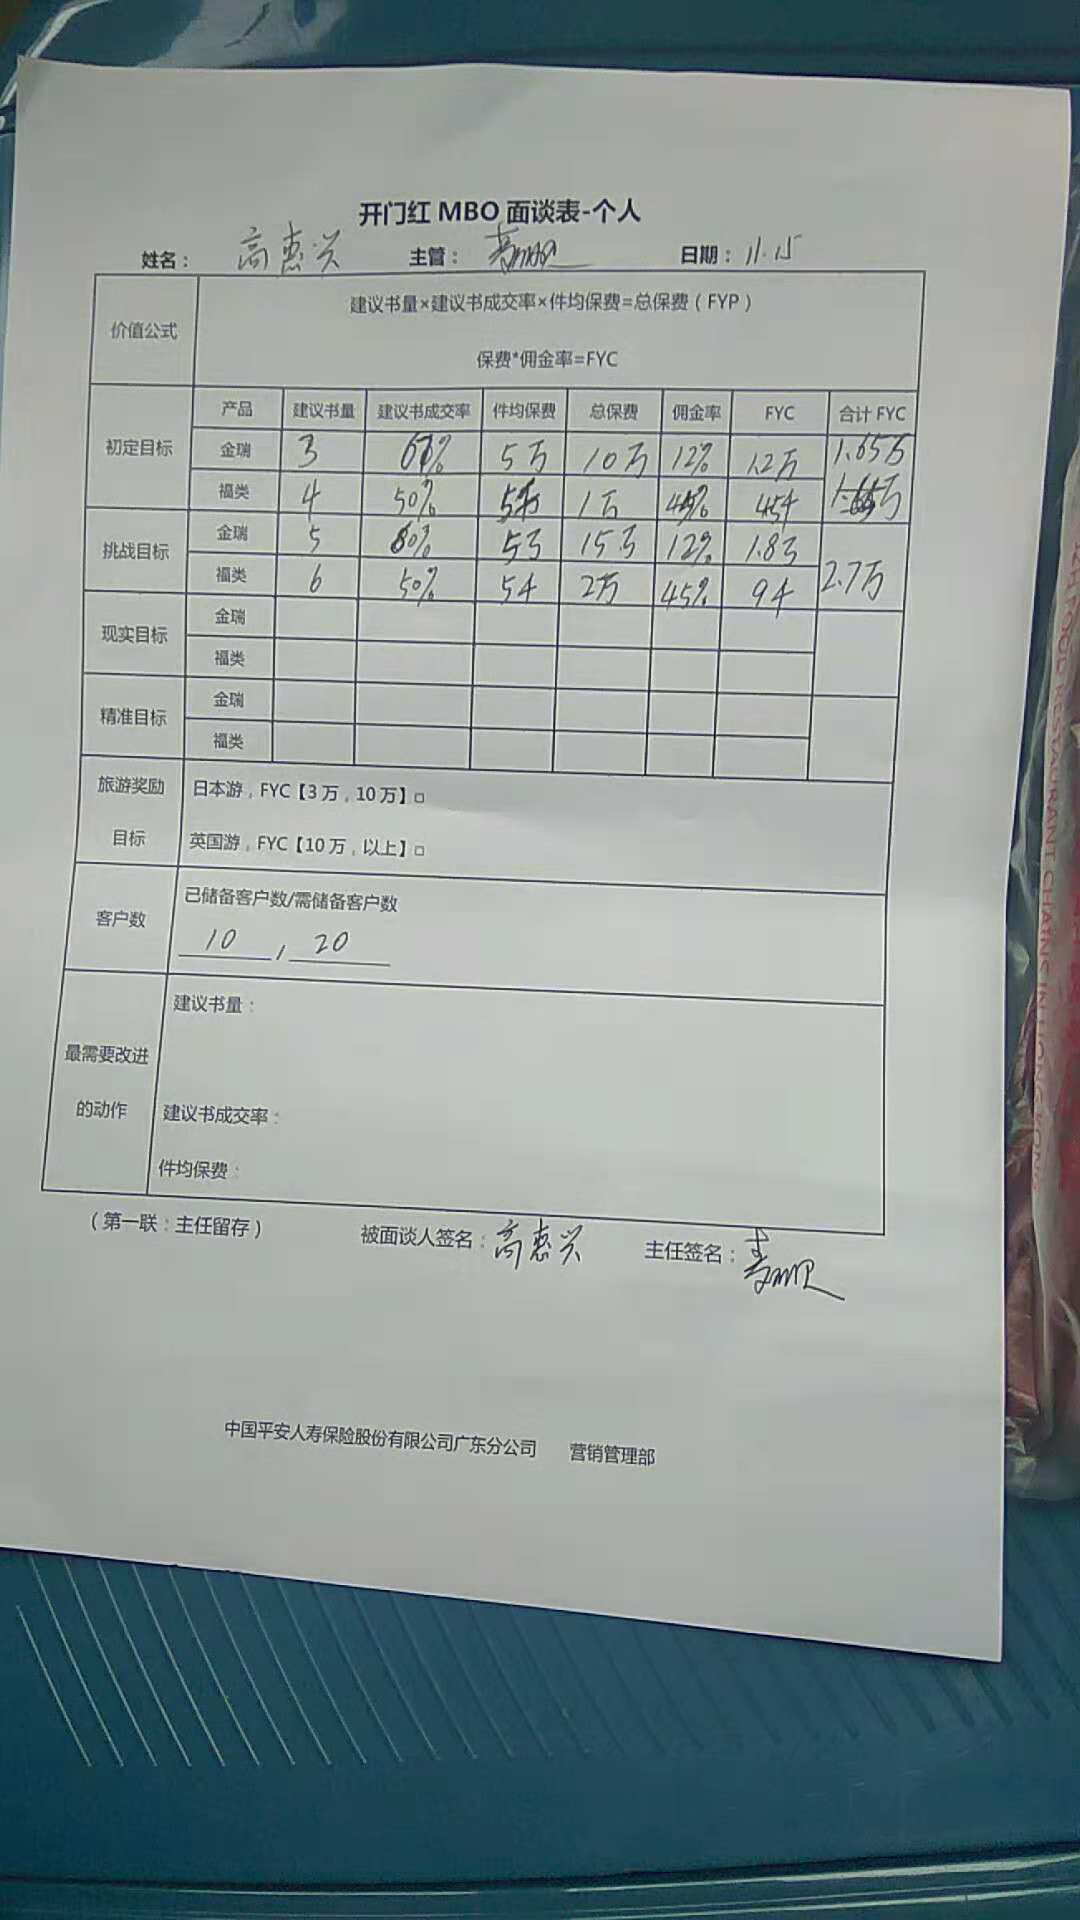 开门红 MBO 面谈表-个人
姓名： 高惠兴 主管： 日期： 11.15
价值公式
建议书量×建议书成交率×件均保费=总保费（FYP）
保费*佣金率=FYC
产品 建议书量 建议书成交率 件均保费 总保费 佣金率 FYC 合计 FYC
初定目标
金瑞 3 67% 5万 10万 12% 1.2万 1.65万
福类 4 50% 5千 1万 45% 4.5千
挑战目标
金瑞 5 60% 5万 15万 12% 1.8万 2.7万
福类 6 50% 5千 2万 45% 9千
现实目标
金瑞
福类
精准目标
金瑞
福类
旅游奖励
目标
日本游，FYC【3万，10万】□
英国游，FYC【10万，以上】□
客户数
已储备客户数/需储备客户数
10 / 20
最需要改进
的动作
建议书量：
建议书成交率：
件均保费：
（第一联：主任留存） 被面谈人签名：高惠兴 主任签名：
中国平安人寿保险股份有限公司广东分公司 营销管理部